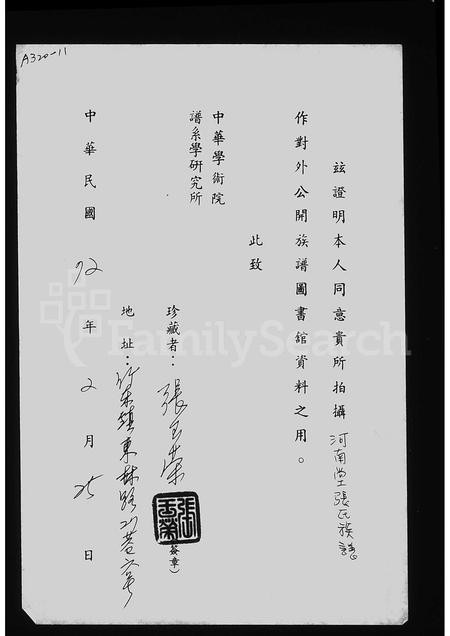 A320-11
茲證明本人同意貴所拍攝河南堂張氏族譜
作對外公開族譜圖書館資料之用。
此致
中華學術院
譜系學研究所
珍藏者：張玉榮
張玉榮
(簽章)
地址：竹東鎮東林路
中華民國72年2月25日
FamilySearch